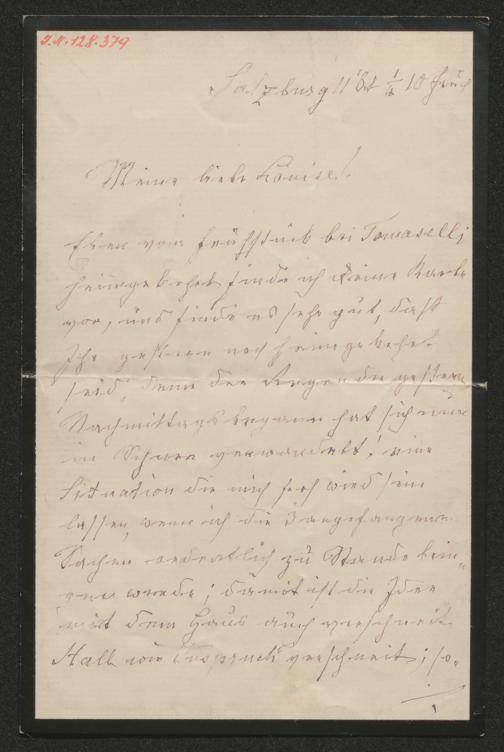 J.N. 128.379
Salzburg 11 Oct ½ 10 früh
Meine liebe Louise!
Eben vom Frühstück bei Tomaselli
heimgekehrt finde ich Deine Karte
vor, und finde es sehr gut, daß
Ihr gestern noch heimgekehrt
seid, denn der Regen der gestern
Nachmittags begann hat sich nun
in Schnee verwandelt! eine
Situation die mich froh wird sein
lassen, wenn ich die angefangenen
Sachen ordentlich zu Stande brin-
gen werde; damit ist die Idee
mit dem Haus auch verschneit
Hall wie Inspruck verschneit; so-